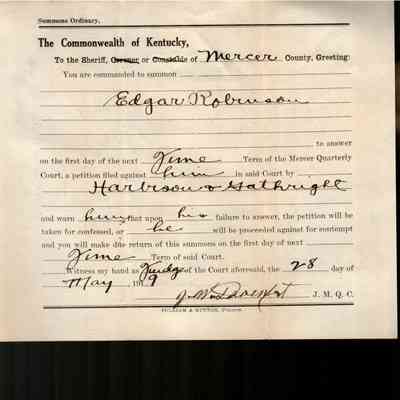 Summons Ordinary.
The Commonwealth of Kentucky,
To the Sheriff, Coroner or Constable of Mercer County, Greeting:
You are commanded to summon
Edgar Robinson
to answer
on the first day of the next June Term of the Mercer Quarterly
Court, a petition filed against him in said Court by
Harbison & Gathright
and warn him that upon his failure to answer, the petition will be
taken for confessed, or he will be proceeded against for contempt
and you will make due return of this summons on the first day of next
June Term of said Court.
Witness my hand as Judge of the Court aforesaid, the 28 day of
May 1919
J. M. Q. C.